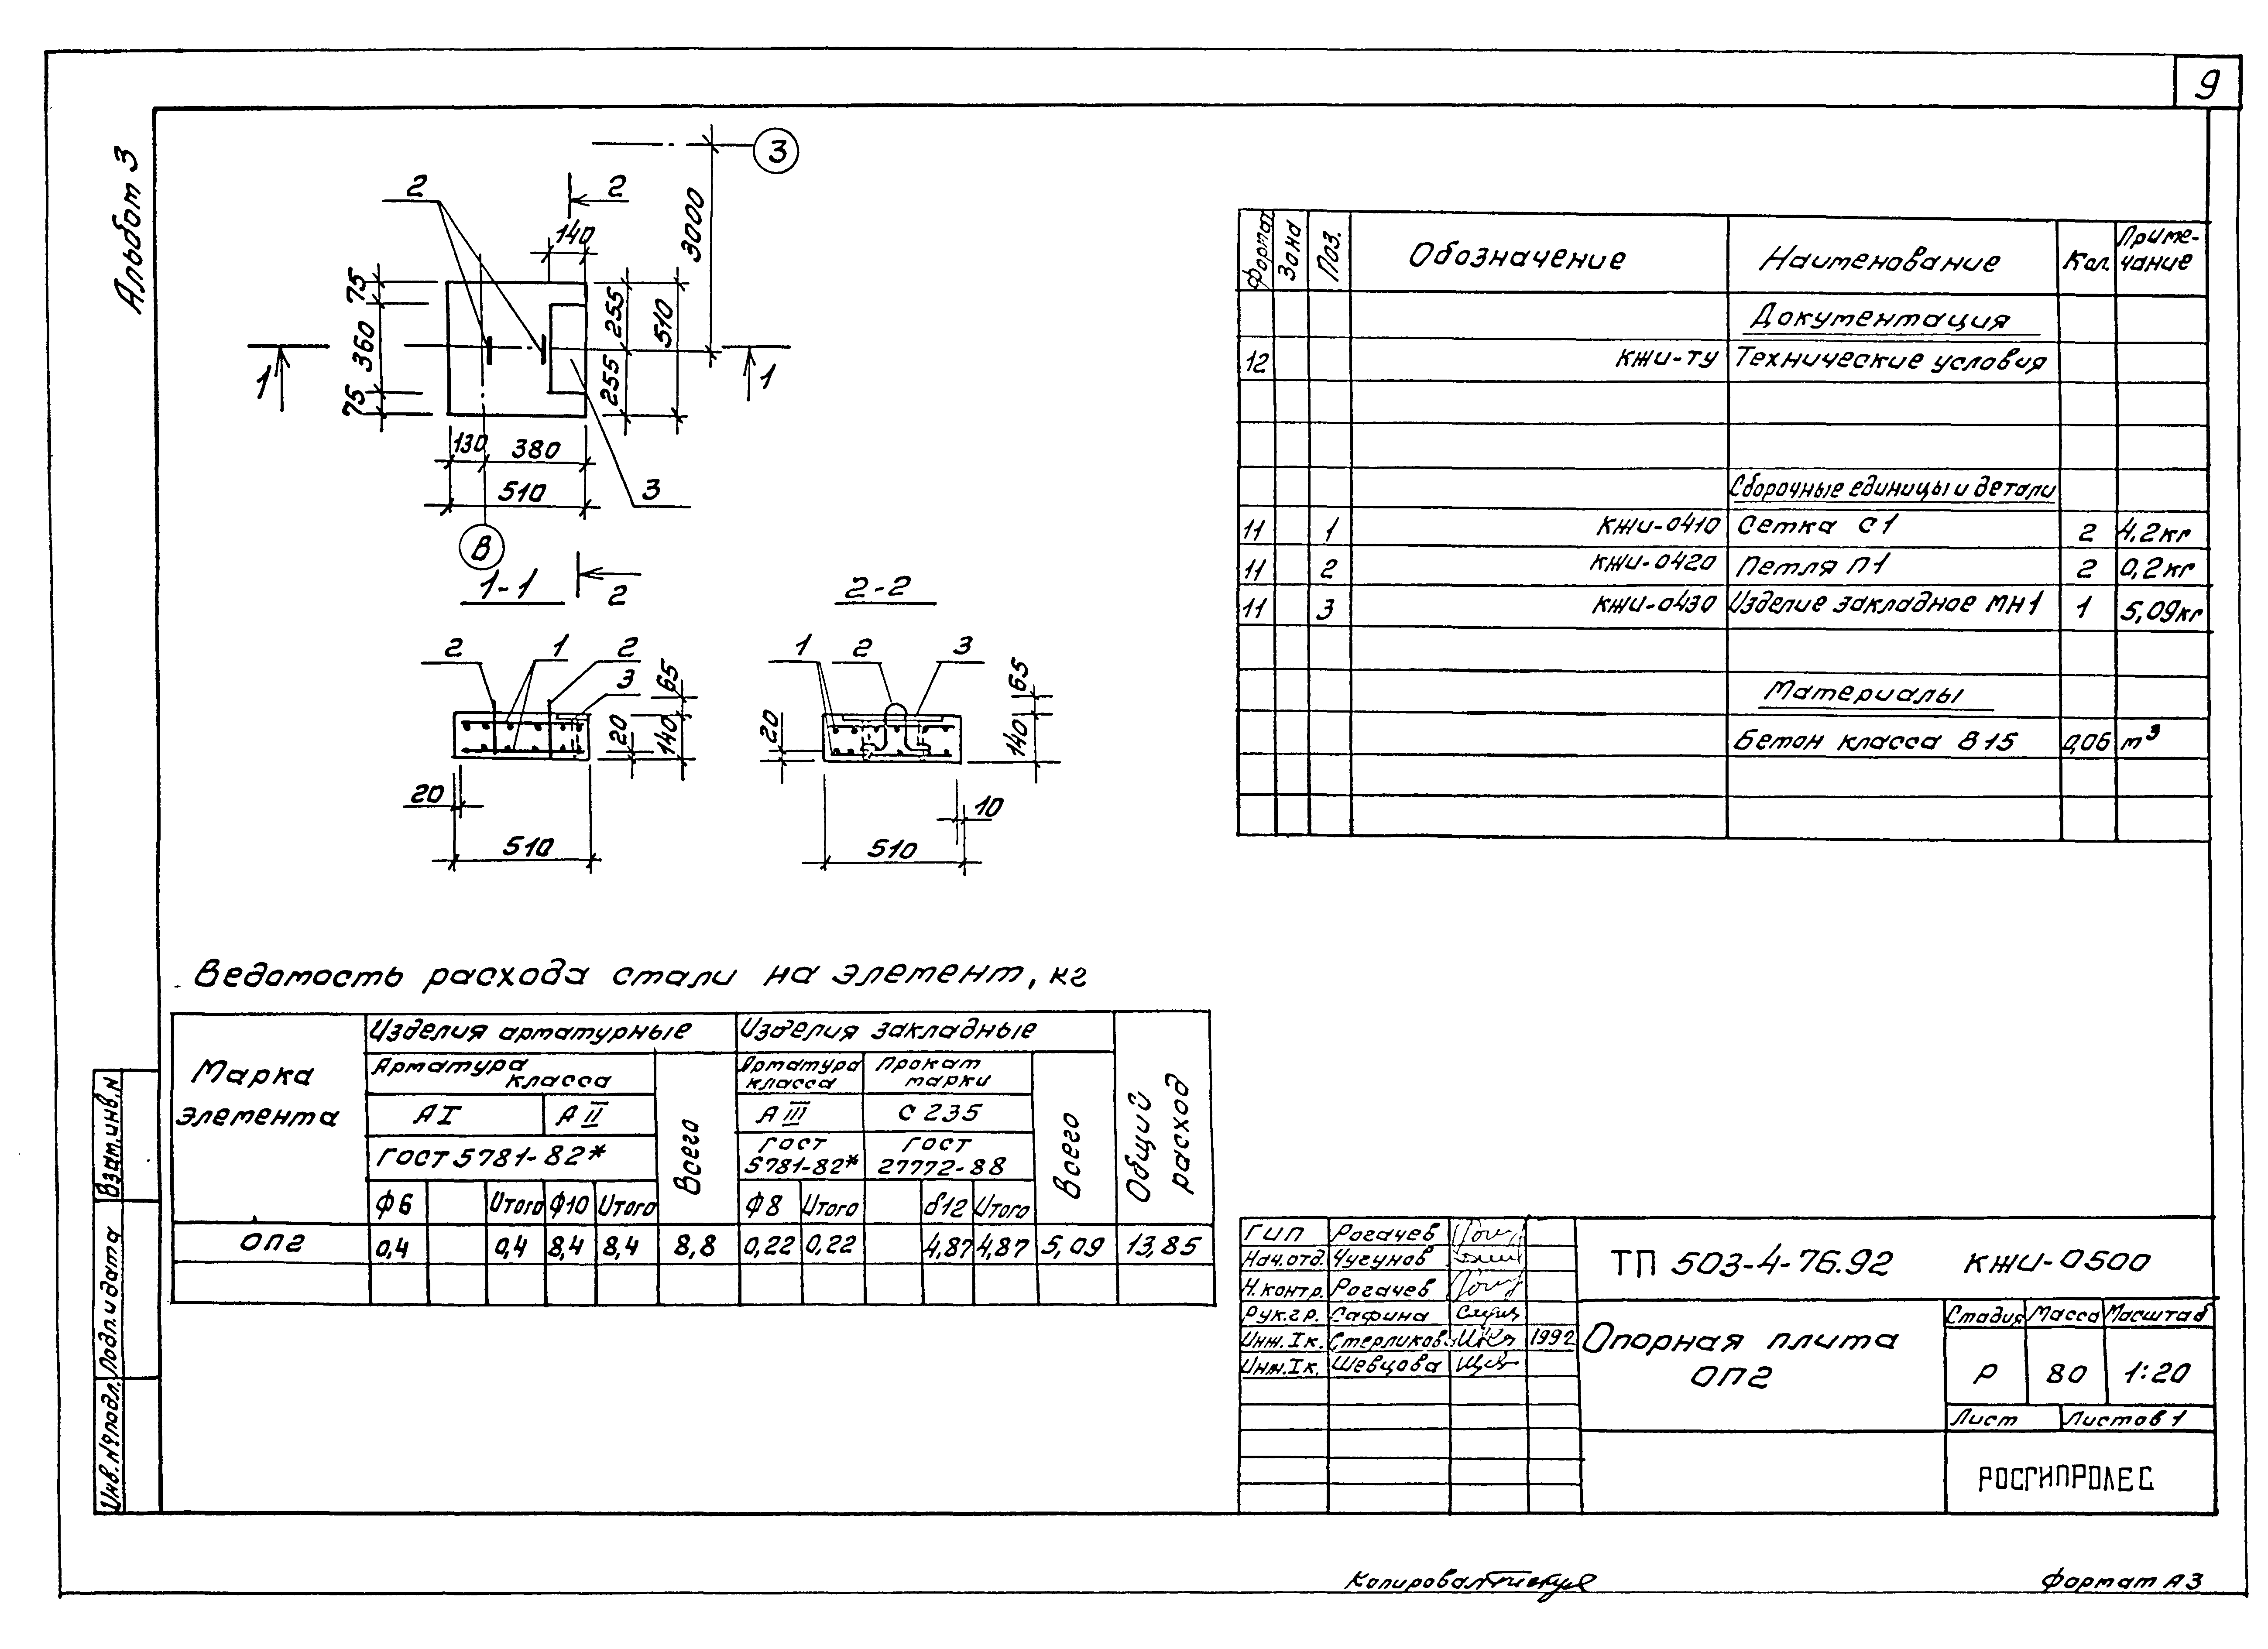 9
Альбом 3
3
2
2
140
3000
75
360
75
255
255
510
1
1
130
380
510
3
В
2
1-1
2
1
2
3
65
20
140
20
510
2-2
1
2
3
65
20
140
10
510
Формат Зона Поз. Обозначение Наименование Кол. Приме-
чание
Документация
12 КЖИ-ТУ Технические условия
Сборочные единицы и детали
11 1 КЖИ-0410 Сетка С1 2 4,2кг
11 2 КЖИ-0420 Петля П1 2 0,2кг
11 3 КЖИ-0430 Изделие закладное МН1 1 5,09кг
Материалы
Бетон класса В15 0,06 м³
Ведомость расхода стали на элемент, кг
Марка
элемента
Изделия арматурные
Изделия закладные
Общий
расход
Арматура
класса
Всего
Арматура
класса
Прокат
марки
Всего
АI АII
АIII С235
ГОСТ 5781-82*
ГОСТ
5781-82*
ГОСТ
27772-88
Ф6 Итого Ф10 Итого Ф8 Итого δ12 Итого
ОП2 0,4 0,4 8,4 8,4 8,8 0,22 0,22 4,87 4,87 5,09 13,85
Взам.инв.N
Подп.и дата
Инв.№подл.
ГИП Рогачев
Нач.отд. Чугунов
Н.контр. Рогачев
Рук.гр. Сафина
Инж.Iк. Стерликов 1992
Инж.Iк. Шевцова
ТП 503-4-76.92 КЖИ-0500
Опорная плита
ОП2
Стадия Масса Масштаб
Р 80 1:20
Лист Листов 1
РОСГИПРОЛЕС
Копировал
Формат А3